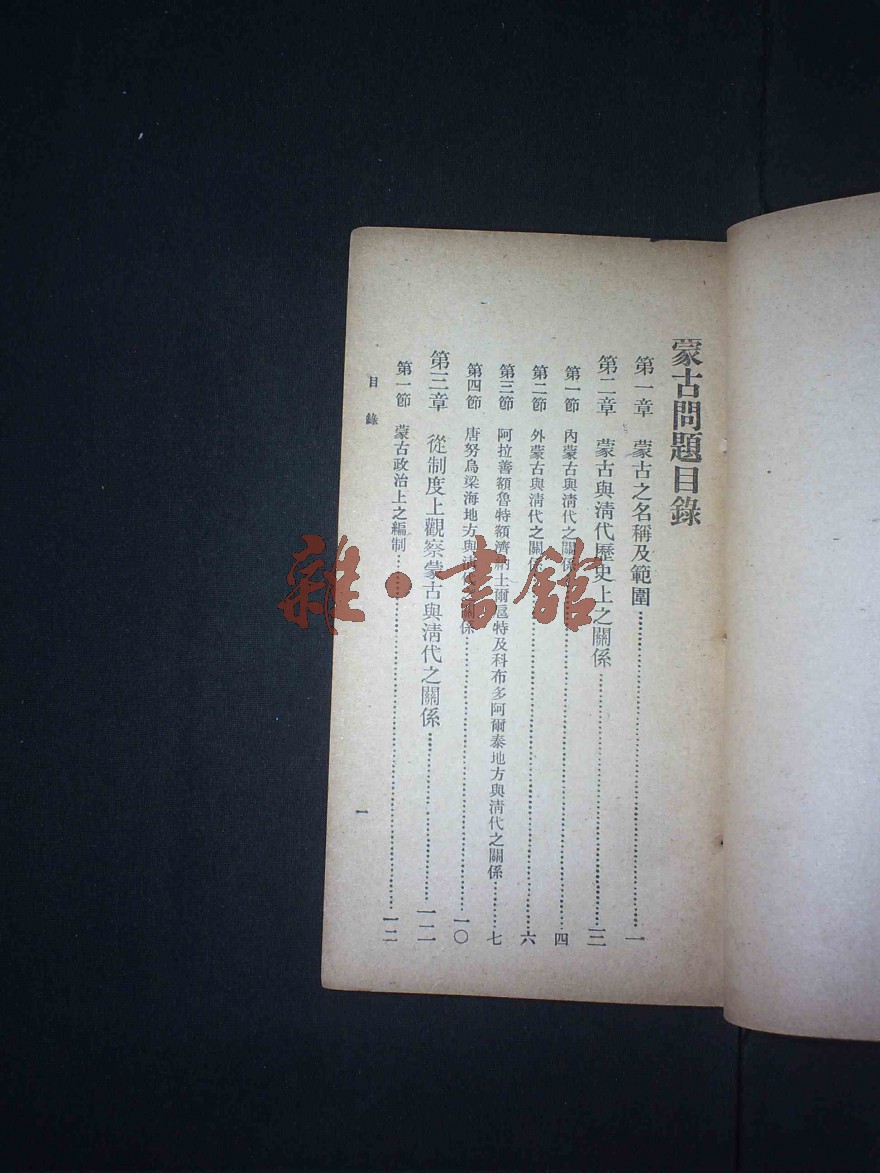 蒙古問題目錄
第一章　蒙古之名稱及範圍……一
第二章　蒙古與淸代歷史上之關係……三
第一節　內蒙古與淸代之關係……四
第二節　外蒙古與淸代之關係……六
第三節　阿拉善額魯特額濟納土爾扈特及科布多阿爾泰地方與淸代之關係……七
第四節　唐努烏梁海地方與淸代之關係……一〇
第三章　從制度上觀察蒙古與淸代之關係……一二
第一節　蒙古政治上之編制……一二
目錄
一
雜·書館